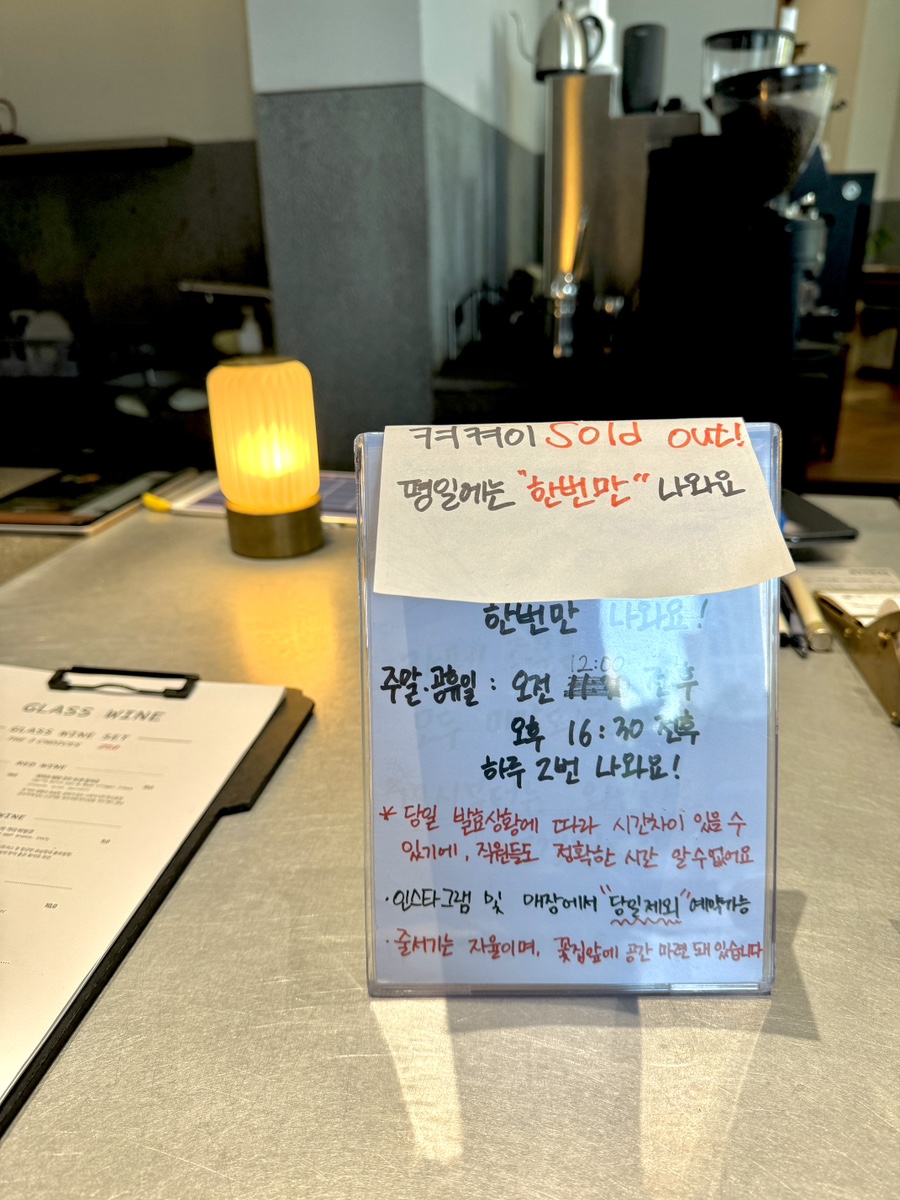 켜켜이 Sold out!
평일에는 "한번만" 나와요
한번만 나와요!
12:00
주말.공휴일 : 오전 전후
오후 16:30 전후
하루 2번 나와요!
* 당일 발효상황에 따라 시간차이 있을 수
있기에, 직원들도 정확한 시간 알 수 없어요
· 인스타그램 및 매장에서 "당일제외" 예약가능
· 줄서기는 자율이며, 꽃집앞에 공간 마련 돼 있습니다
GLASS WINE
GLASS WINE SET
RED WINE
WINE